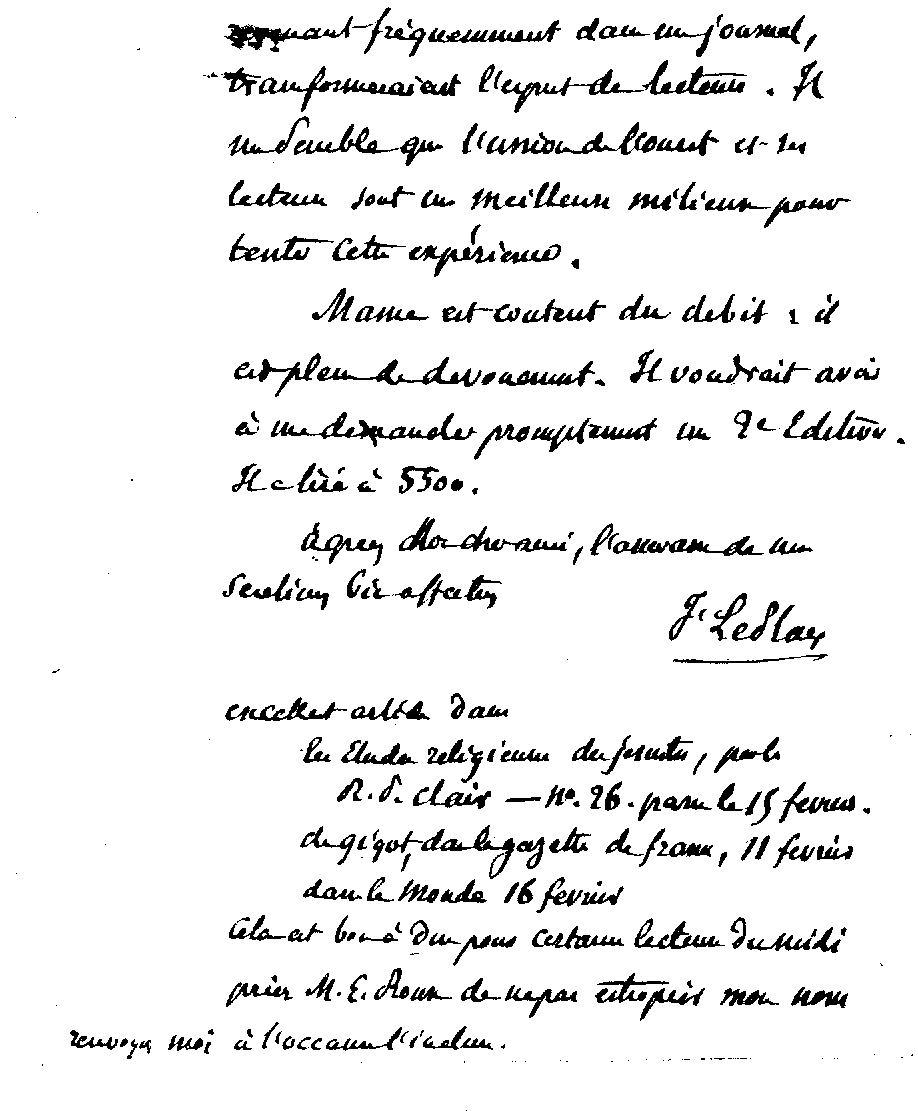 revenant fréquemment dans un journal,
transformeraient l'esprit de lecteurs. Il
me semble que l'union de l'ouest et ses
lecteurs sont un meilleur milieu pour
tenter cette expérience.
Mame est content du debit ; il
est plein de devouement. Il voudrait avoir
à me demander promptement un 2e Edition.
Il a tiré à 5500.
Agréez Mon cher ami, l'assurance de mes
sentimens bien affectueux
F. LePlay
excellent article dans
les Etudes religieuses des jesuites, par le
R. P. Clair — No. 26. paru le 15 fevrier.
de gigot, dans la gazette de france, 11 fevrier
dans le Monde 16 fevrier
Cela est bon à dire pour certains lecteurs du midi
prier M. E. Roux de ne pas estropier mon nom
renvoyez moi à l'occasion l'inclus.